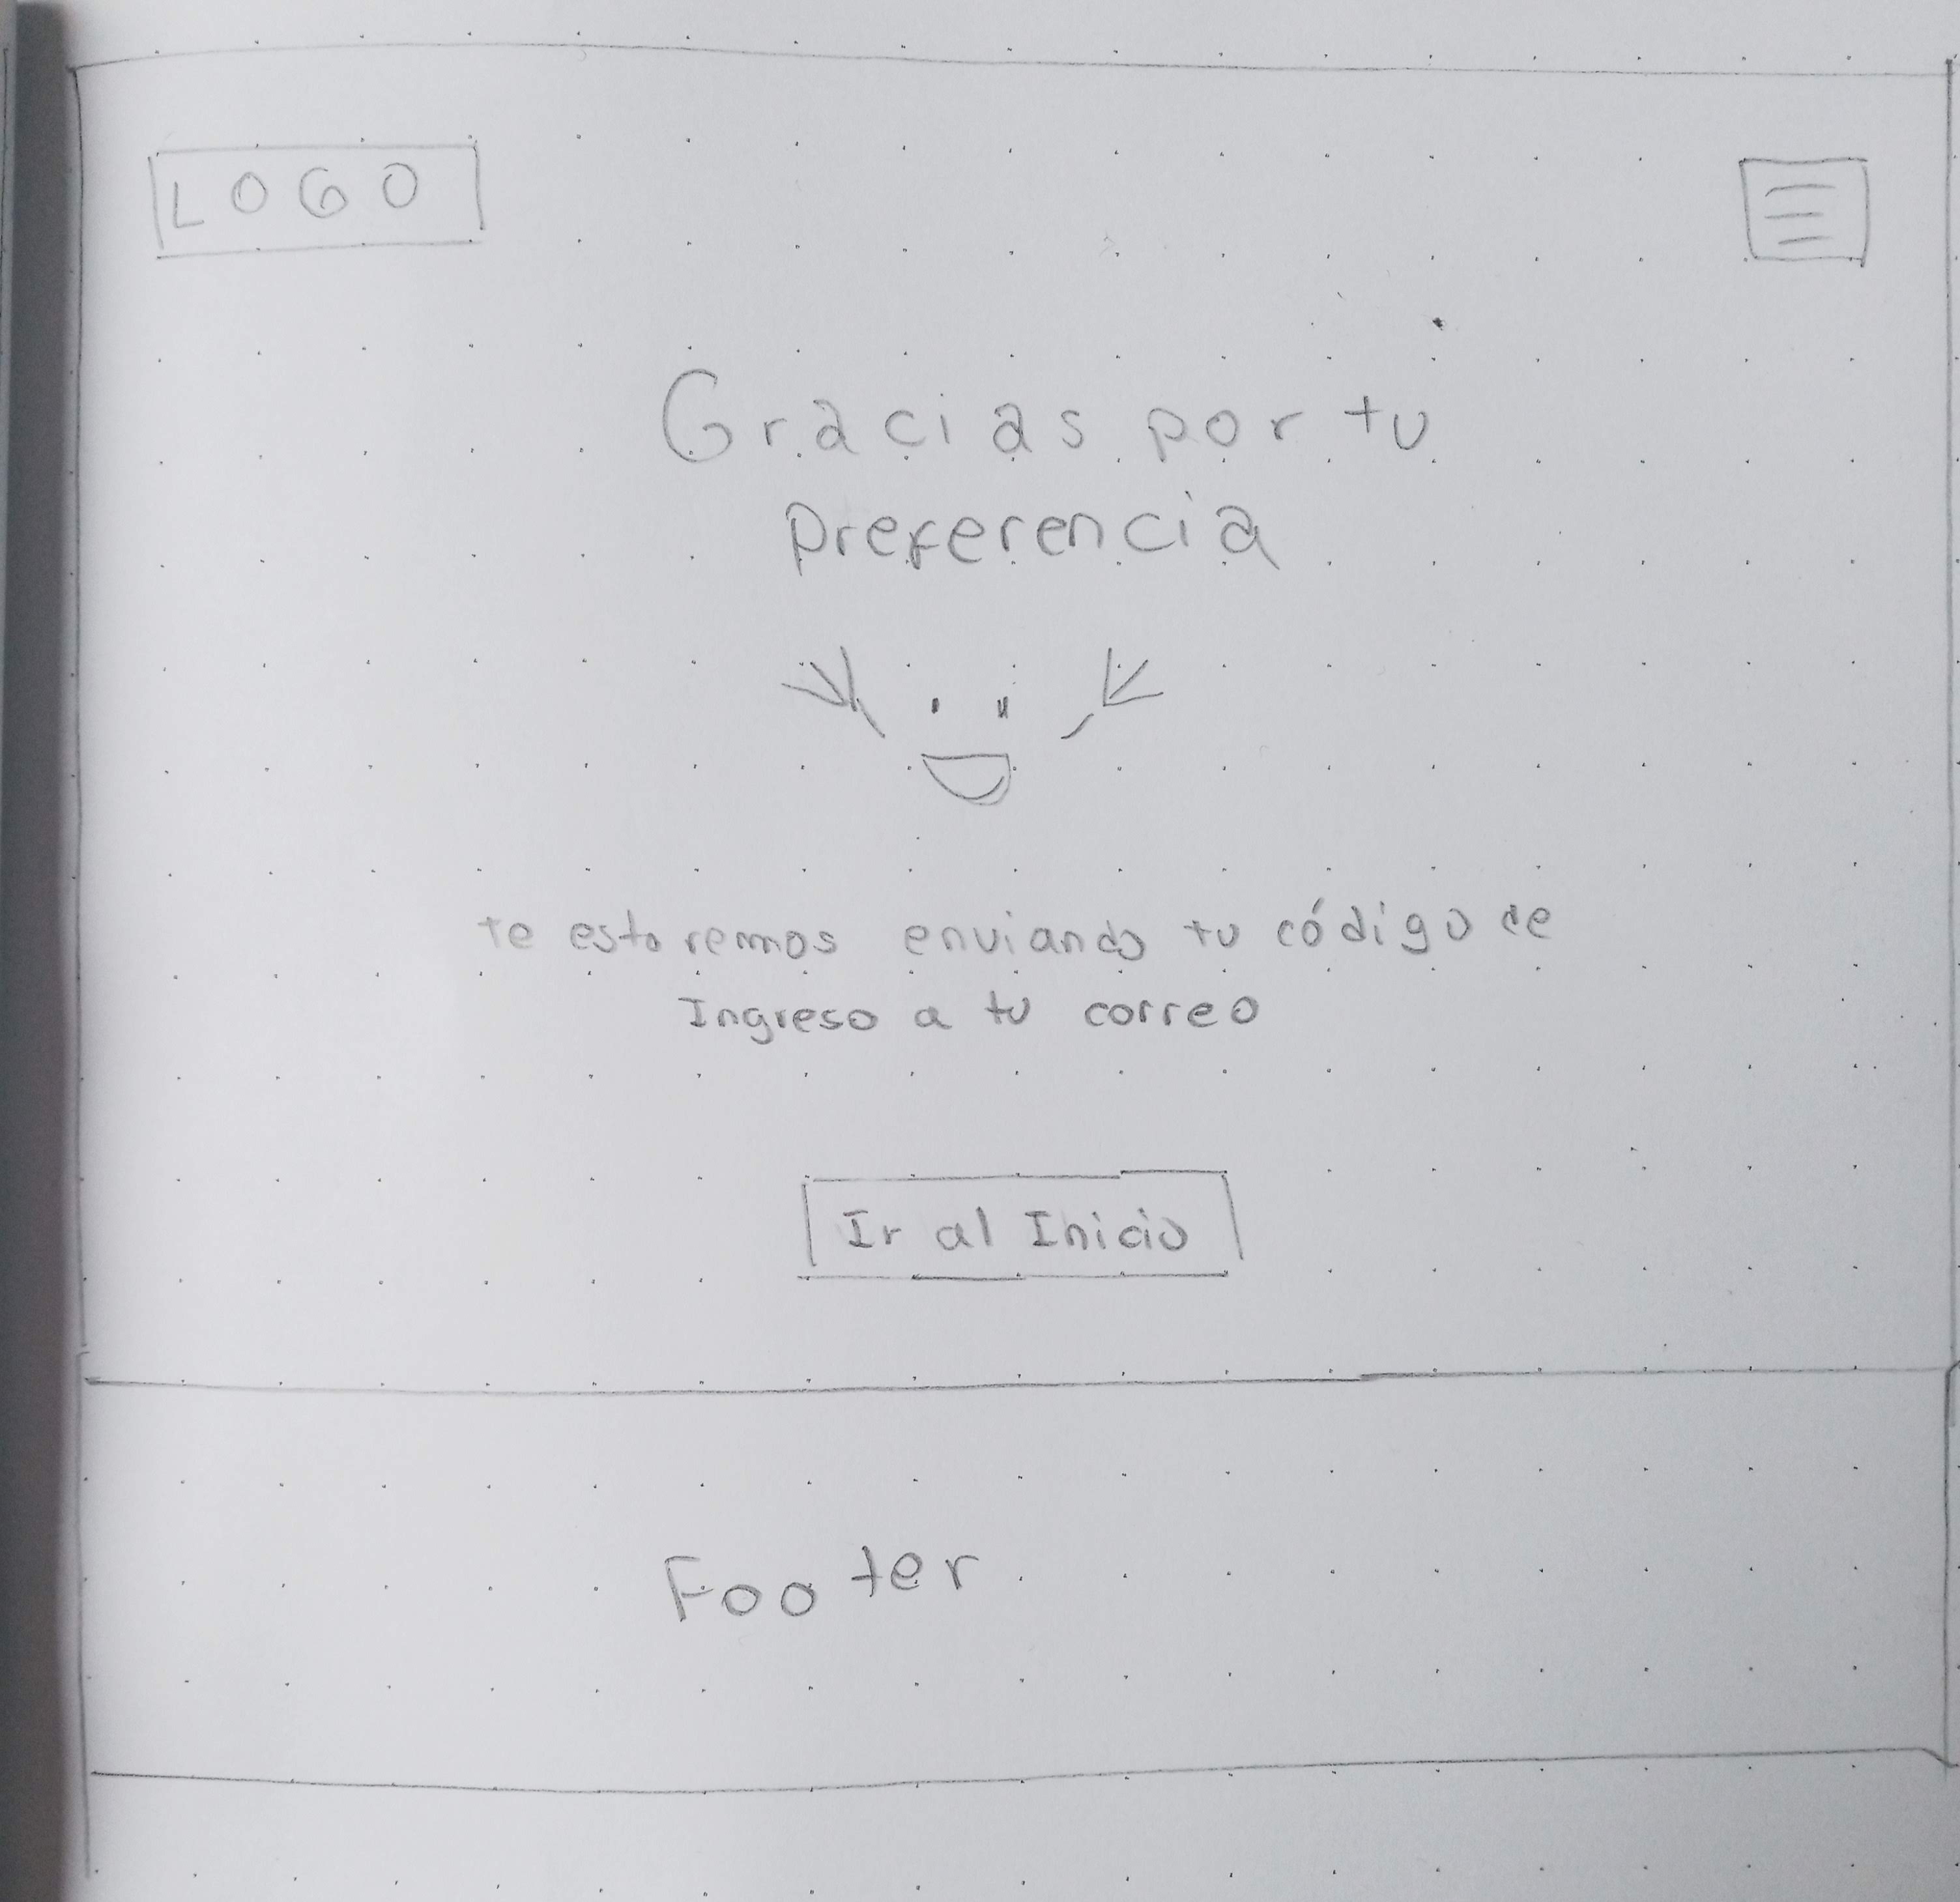 LOGO
Gracias por tu
preferencia
te estaremos enviando tu código de
Ingreso a tu correo
Ir al Inicio
Footer